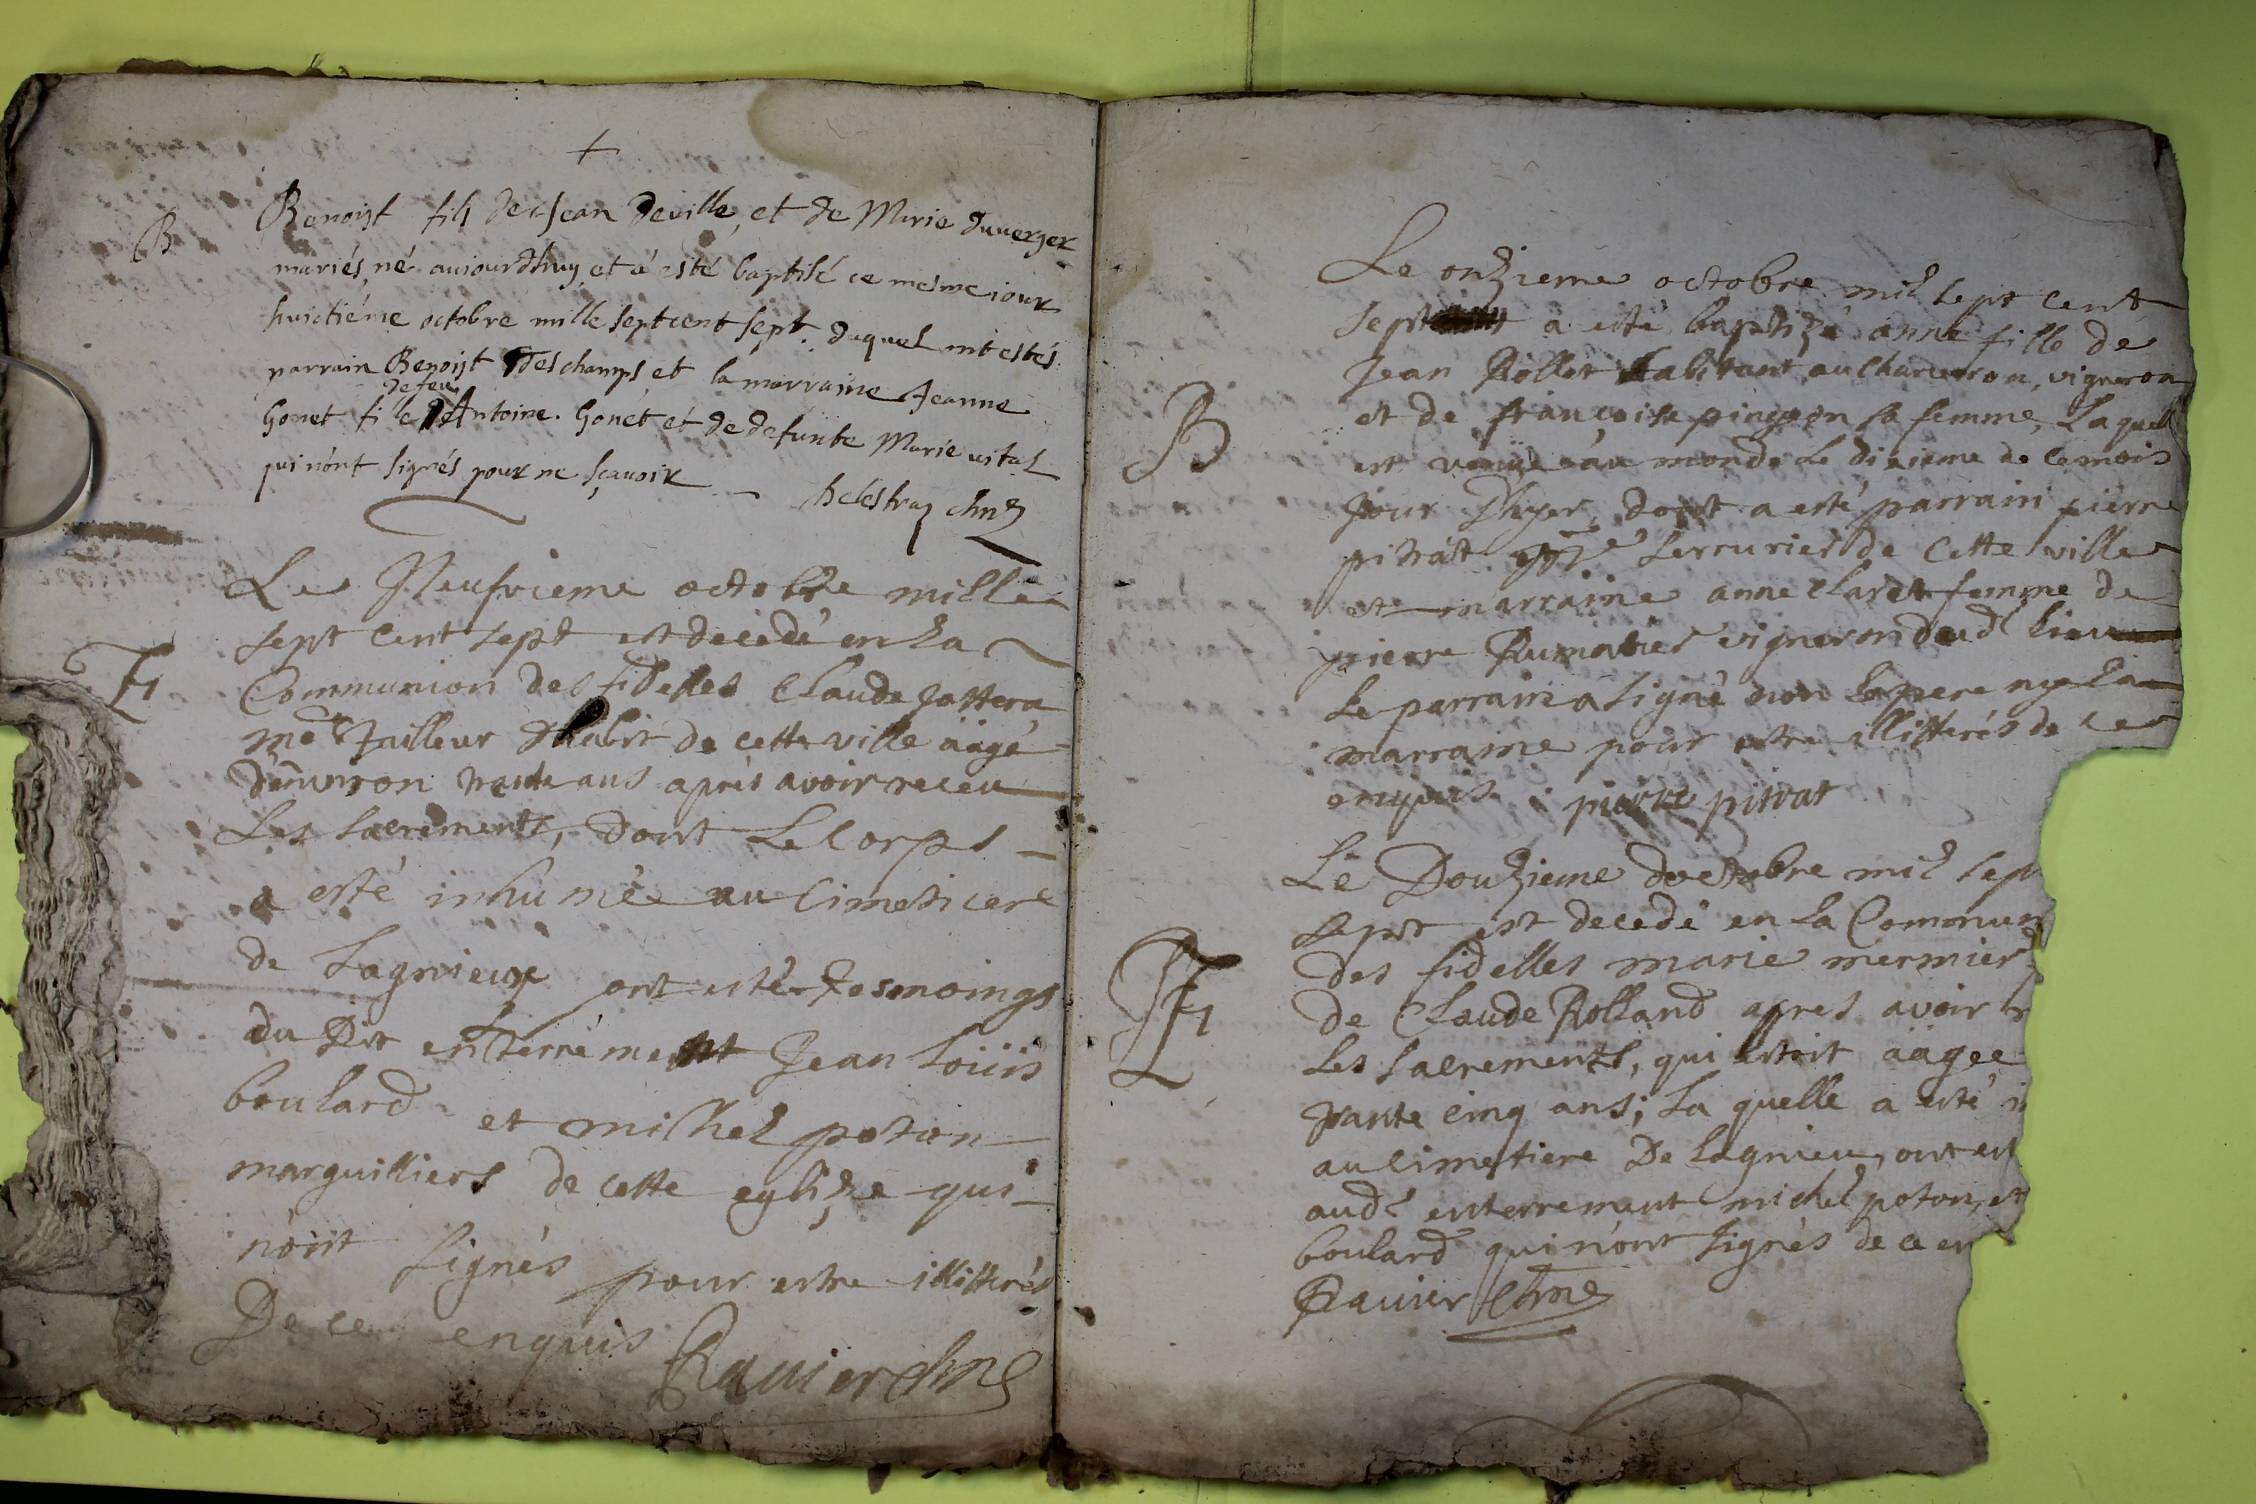 +
B
Benoist fils de Jean Deville, et de Marie Duverger
mariés, né aujourdhuy, et a esté baptisé ce mesme iour
huictiéme octobre mille sept cent sept. duquel int estés
parrain Benoist Deschamps, et la marraine Jeanne
de feu
Gonet fi le Antoine. Gonet et de defunte Marie vital
qui n'ont signés pour ne sçavoir
Le Neufvieme octobre mille
sept cent sept est decedé en La
F
Communion des fidelles Claude
me Tailleur d'habit de cette ville aàgé
D'environ trente ans apres avoir receu
Les sacrements, dont Le Corps
a esté inhumé au Cimetiere
de Lagnieux ont esté tesmoings
du Dit enterrement Jean Loüis
boulard et michel poton
marguilliers de cette eglize qui
n'ont signés pour estre illitterés
De ce enquis Ravier
Le onzieme octobre mil sept cent
sept a esté baptizé anne fille de
Jean Rollet habitant au Charveyron, vigneron
B
et de françoise pingeon sa femme, Laquell
est venüe au monde Le dixieme de ce mois
Jour D'hyer, dont a esté parrain pierre
pitrat serrurier de Cette ville
et marraine anne Claret femme de
pierre Rumatier vigneron dud lieu
Le parrain a signé non Le pere ny La
marraine pour estre illitterés de ce
enquis pierre pitrat
Le Douzieme d'octobre mil sep
sept est decedé en La Commun
F
des fidelles marie mermier
de Claude Rolland apres avoir
Les sacrements, qui estoit aàgee
rante cinq ans; La quelle a esté
au Cimetiere De Lagnieu, ont est
aud enterrement michel poton, et
boulard qui n'ont signés de ce en
Ravier